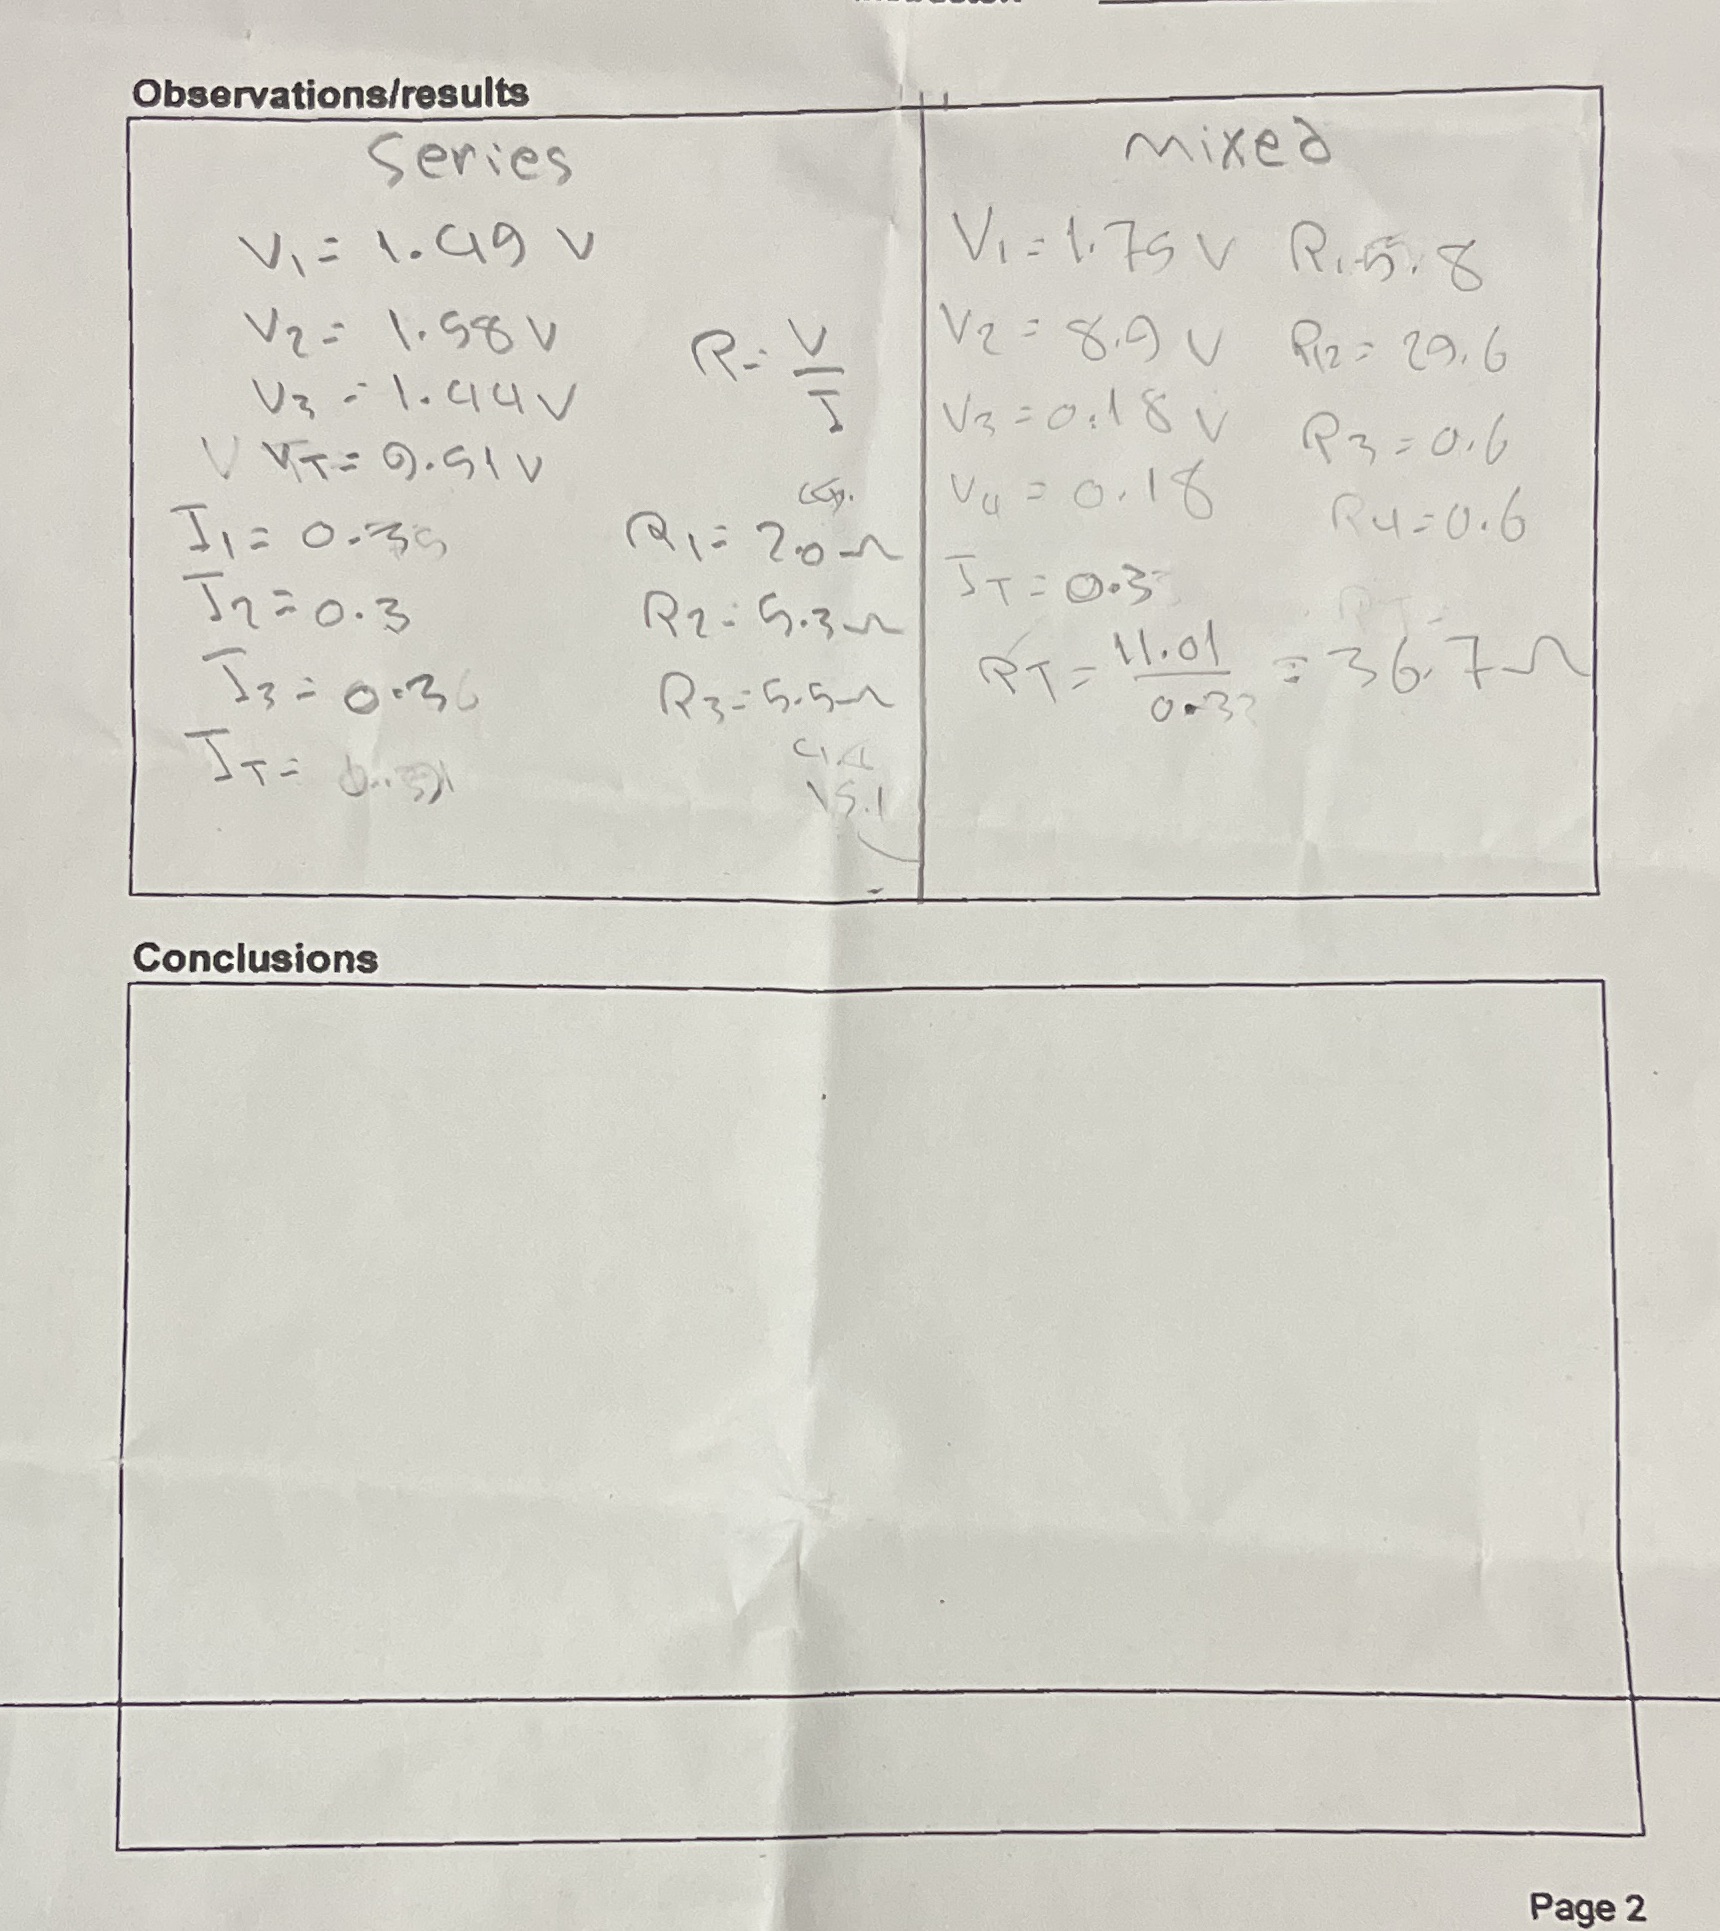 Observations/results
Series
V1 = 1.49 V
V2 = 1.58 V
V3 = 1.44 V
V VT = 9.51 V
I1 = 0.3
I2 = 0.3
I3 = 0.36
IT =
R = V
I
R1 = 2.0 Ω
R2 = 5.3 Ω
R3 = 5.5 Ω
15.1
mixed
V1 = 1.75 V R1 5.8
V2 = 8.9 V R2 = 29.6
V3 = 0.18 V R3 = 0.6
V4 = 0.18 R4 = 0.6
IT = 0.3
RT = 11.01 / 0.3 = 36.7 Ω
Conclusions
Page 2